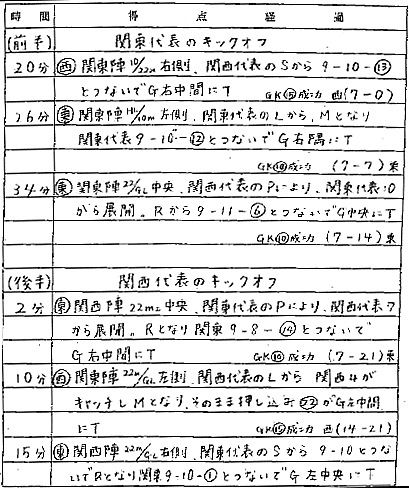 時間 得点経過
(前半) 関東代表のキックオフ
20分 ㊄ 関東陣10/22m右側、関西代表のSから9-10-⑬
とつないでG右中間にT GK⑮成功 西(7-0)
26分 ㊅ 関東陣10m左側、関東代表のLから、Mとなり
関東代表9-10-⑫とつないでG右隅にT
GK⑩成功 (7-7)東
34分 関東陣22/GL中央、関西代表のPにより、関東代表10
から展開。Rから9-11-⑥とつないでG中央にT
GK⑩成功 (7-14)東
(後半) 関西代表のキックオフ
2分 関西陣22m中央、関東代表のPにより、関西代表7
から展開。Rとなり関東9-8-⑭とつないで
G右中間にT GK⑩成功 (7-21)東
10分 関東陣22m/GL左側、関西代表のLから 関西4が
キャッチしMとなり、そのまま押し込み㉒がG左中間
にT GK⑮成功 西(14-21)
15分 関西陣22m/GL右側、関東代表のSから9-10とつな
いでRとなり関東9-10-①とつないでG左中央にT